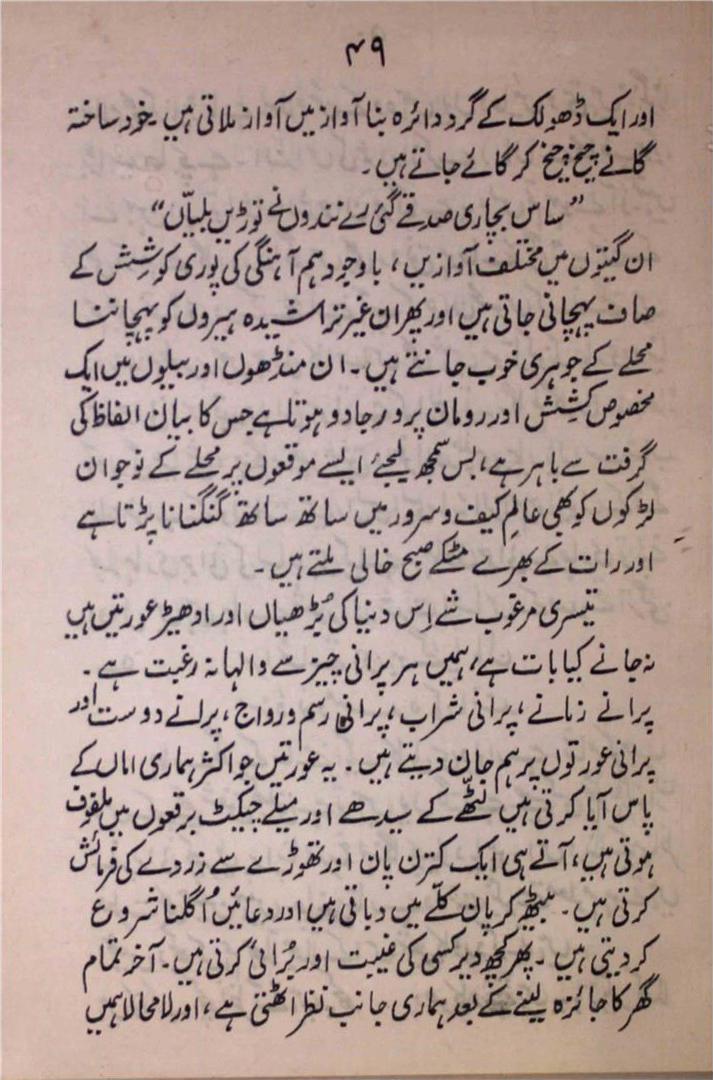 ۴۹
اور ایک ڈھولک کے گرد دائرہ بنا آواز میں آواز ملاتی ہیں۔ خود ساختہ
گانے چیخ چیخ کر گائے جاتے ہیں۔
”ساس بچاری صدقے گئی رے نندوں نے توڑیں بلیاّں“
ان گیتوں میں مختلف آوازیں، باوجود ہم آہنگی کی پوری کوشش کے
صاف پہچانی جاتی ہیں اور پھر ان غیر تراشیدہ ہیروں کو پہچاننا
محلے کے جوہری خوب جانتے ہیں۔ ان منڈھوں اور بیلوں میں ایک
مخصوص کشش اور رومان پرور جادو ہوتا ہے جس کا بیان الفاظ کی
گرفت سے باہر ہے، بس سمجھ لیجئے ایسے موقعوں پر محلے کے نوجوان
لڑکوں کو بھی عالمِ کیف و سرور میں ساتھ ساتھ گنگنانا پڑتا ہے
اور رات کے بھرے مٹکے صبح خالی ملتے ہیں۔
تیسری مرغوب شے اِس دنیا کی بُڑھیاں اور ادھیڑ عورتیں ہیں
نہ جانے کیا بات ہے، ہمیں ہر پرانی چیز سے والہانہ رغبت ہے۔
پرانے زمانے، پرانی شراب، پرانی رسم و رواج، پرانے دوست اور
پرانی عورتوں پر ہم جان دیتے ہیں۔ یہ عورتیں جو اکثر ہماری اماں کے
پاس آیا کرتی ہیں لٹھّے کے سیدھے اور میلے چیکٹ برقعوں میں ملفوف
ہوتی ہیں، آتے ہی ایک کترن پان اور تھوڑے سے زردے کی فرمائش
کرتی ہیں۔ بیٹھ کر پان کلّے میں دباتی ہیں اور دعائیں اُگلنا شروع
کر دیتی ہیں۔ پھر کچھ دیر کسی کی غیبت اور بُرائی کرتی ہیں۔ آخر تمام
گھر کا جائزہ لینے کے بعد ہماری جانب نظر اٹھتی ہے، اور لامحالا ہمیں